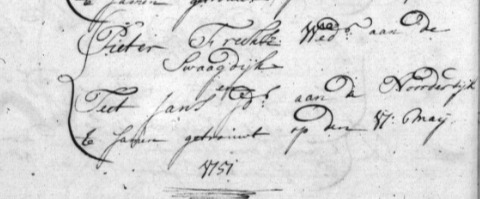 & samen getrouwt
Pieter Fredk Wedr. aan de
Swaagdijk
Teet Jans aan de Noorderdijk
& samen getrouwt op den 17: Maij
1751